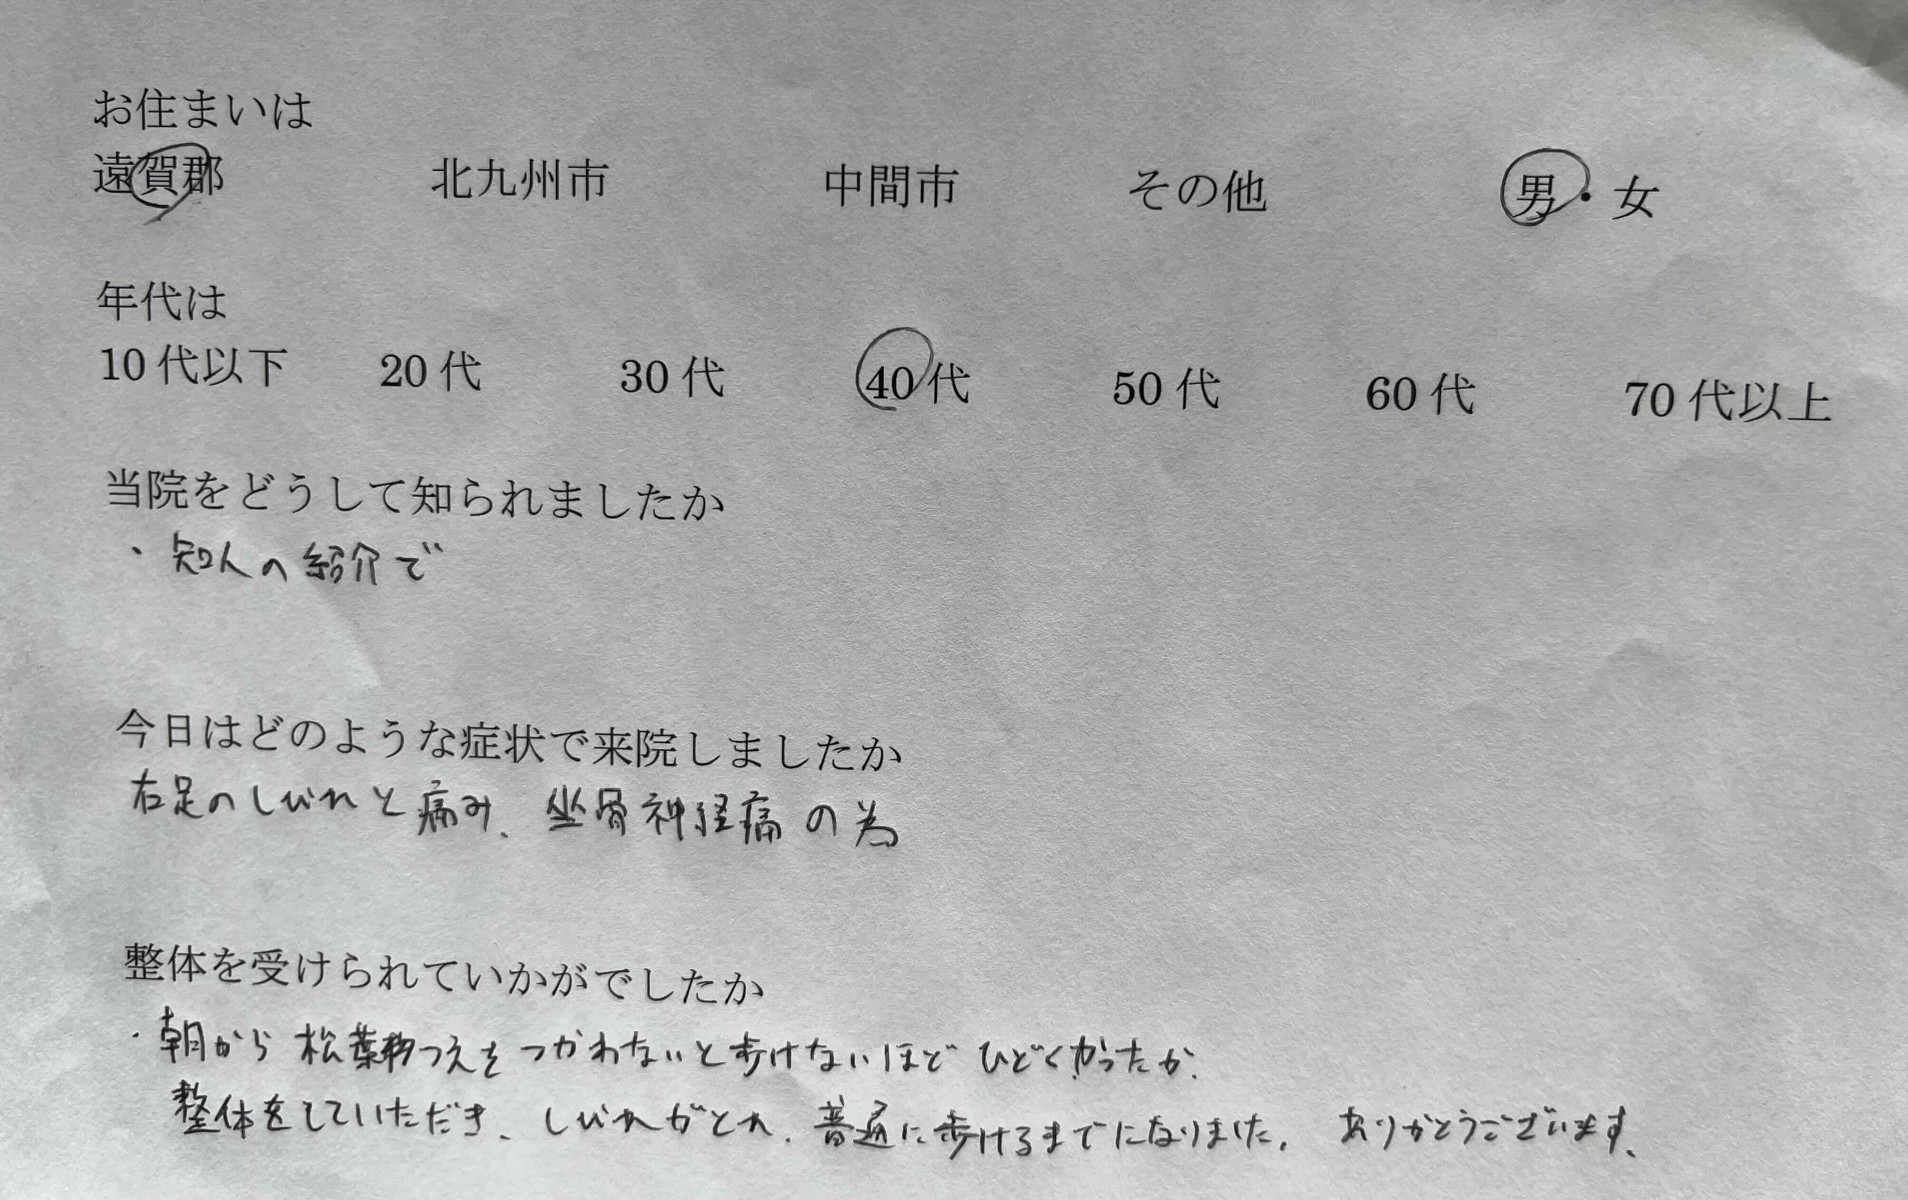 お住まいは
遠賀郡 北九州市 中間市 その他 男・女
年代は
10代以下 20代 30代 40代 50代 60代 70代以上
当院をどうして知られましたか
・知人の紹介で
今日はどのような症状で来院しましたか
右足のしびれと痛み、坐骨神経痛の為
整体を受けられていかがでしたか
・朝から松葉つえをつかわないと歩けないほどひどくかったが、
整体をしていただき、しびれがとれ、普通に歩けるまでになりました。ありがとうございます。